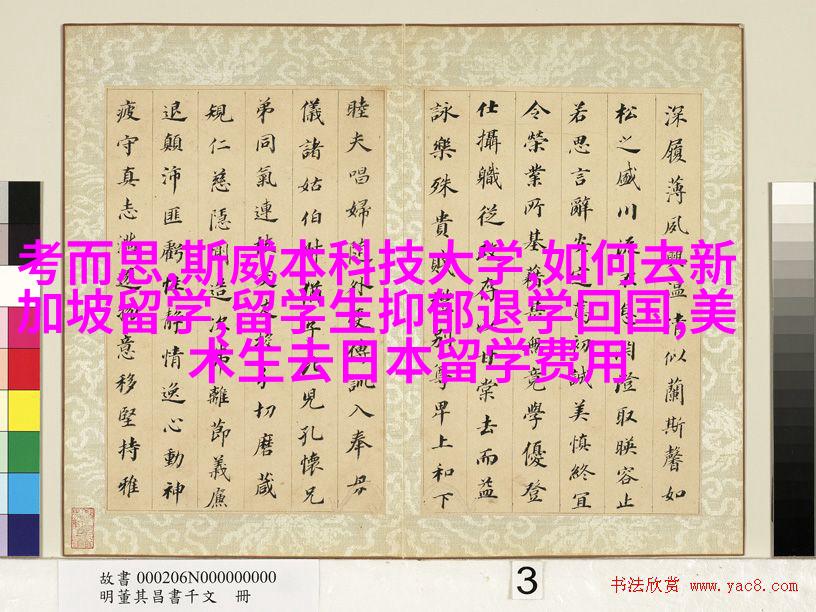 深履薄夙興溫凊似蘭斯馨如
松之盛川流不息淵澄取暎容止
若思言辭安定篤初誠美慎終宜
令榮業所基藉甚無竟學優登
仕攝職從政存以甘棠去而益
詠樂殊貴賤禮別尊卑上和下
睦夫唱婦隨外受傅訓入奉母
儀諸姑伯叔猶子比兒孔懷兄
弟同氣連枝交友投分切磨箴
規仁慈隱惻造次弗離節義廉
退顛沛匪虧性靜情逸心動神
疲守真志滿逐物意移堅持雅
考而思,斯威本科技大学,如何去新
加坡留学,留学生抑郁退学回国,美
术生去日本留学费用
故書 000206N000000000
明董其昌書千文 冊
3
书法欣赏 www.yac8.com